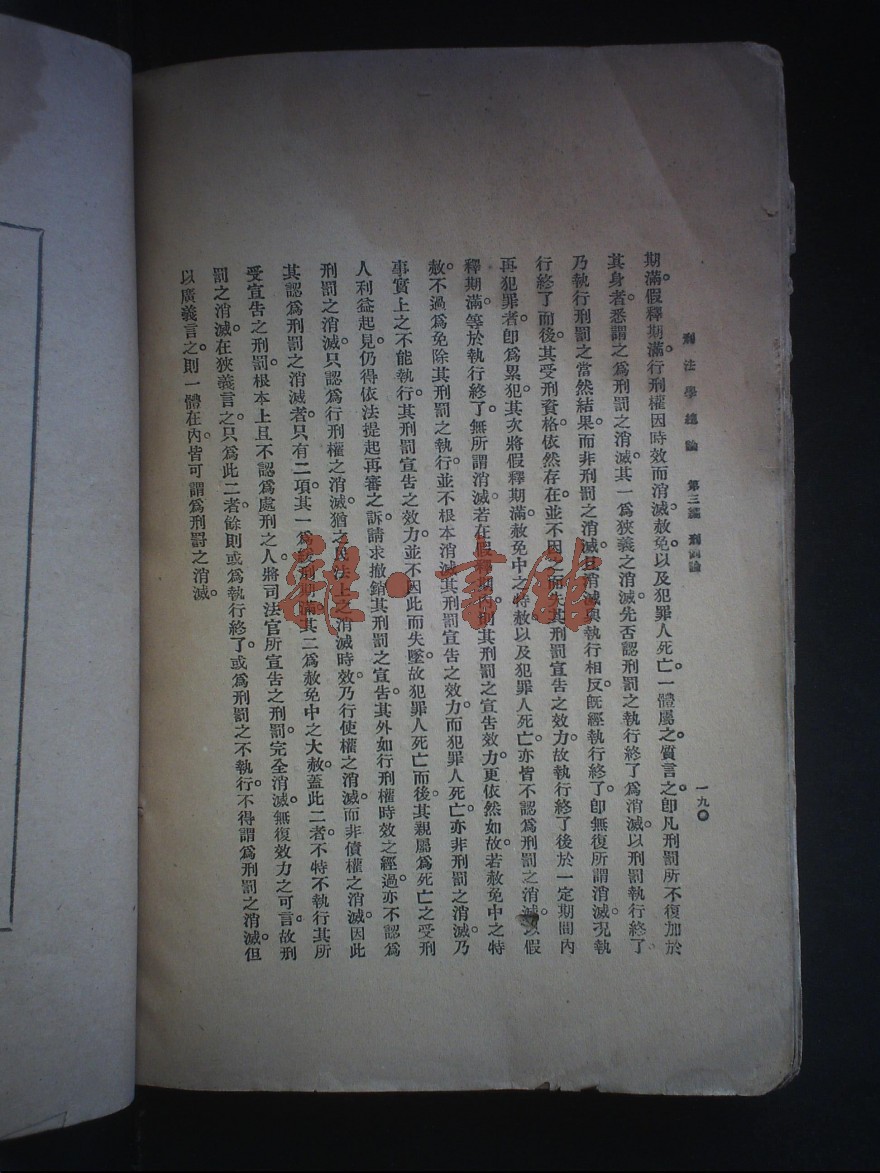 刑法學總論　第三編　刑罰論
一九〇
期滿。假釋期滿。行刑權因時效而消滅。赦免以及犯罪人死亡。一體屬之。質言之。卽凡刑罰所不復加於
其身者。悉謂之爲刑罰之消滅。其一爲狹義之消滅。先否認刑罰之執行終了爲消滅。以刑罰執行終了。
乃執行刑罰之當然結果。而非刑罰之消滅。且消滅與執行相反。旣經執行終了。卽無復所謂消滅。況執
行終了而後。其受刑資格依然存在。並不因之而失其刑罰宣告之效力。故執行終了後於一定期間內
再犯罪者。卽爲累犯。其次將假釋期滿。赦免中之特赦以及犯罪人死亡。亦皆不認爲刑罰之消滅。以假
釋期滿。等於執行終了。無所謂消滅。若在假釋期內。則其刑罰之宣告效力。更依然如故。若赦免中之特
赦。不過爲免除其刑罰之執行。並不根本消滅其刑罰宣告之效力。而犯罪人死亡。亦非刑罰之消滅。乃
事實上之不能執行。其刑罰宣告之效力。並不因此而失墜。故犯罪人死亡而後。其親屬爲死亡之受刑
人利益起見。仍得依法提起再審之訴。請求撤銷其刑罰之宣告。其外如行刑權時效之經過。亦不認爲
刑罰之消滅。只認爲行刑權之消滅。猶之民法上之消滅時效。乃行使權之消滅。而非債權之消滅。因此
其認爲刑罰之消滅者。只有二項。其一爲緩刑期滿。其二爲赦免中之大赦。蓋此二者。不特不執行其所
受宣告之刑罰。根本上且不認爲處刑之人。將司法官所宣告之刑罰。完全消滅。無復效力之可言。故刑
罰之消滅。在狹義言之。只爲此二者。餘則或爲執行終了。或爲刑罰之不執行。不得謂爲刑罰之消滅。但
以廣義言之。則一體在內。皆可謂爲刑罰之消滅。
雜·書館